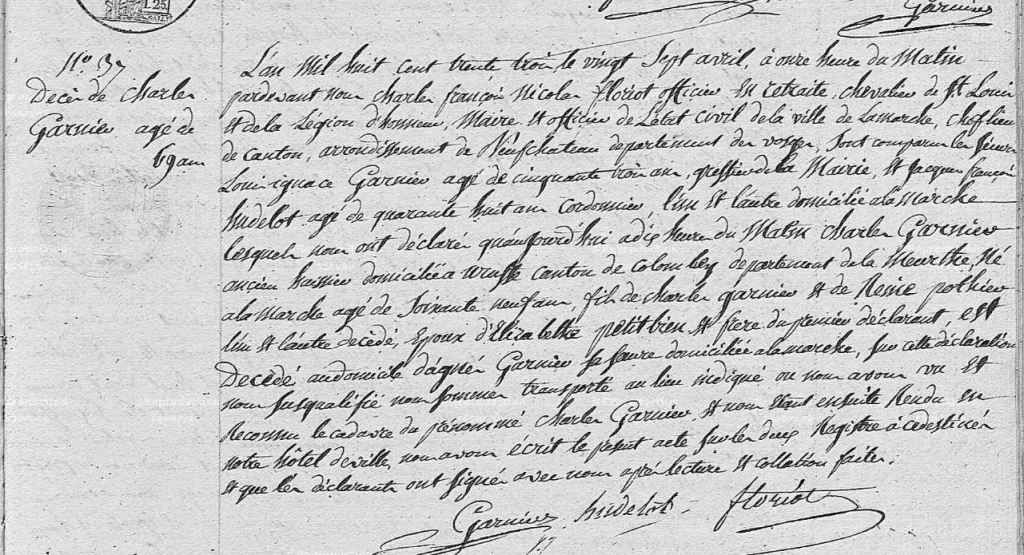 1.25
Garnier
N.º 37
Decè de charles
Garnier agé de
69 ans
L'an Mil huit cent trente trois, le vingt Sept avril, à onze heure du Matin
pardevant nous charles françois Nicolas floriot officier En retraite, chevalier de St. Louis
Et de la Légion d'honneur, Maire Et officier de L'état civil de la ville de Lamarche, chef lieu
de canton, arrondissement de Neufchateau departement des vosges, Sont comparus les Sieurs
Louis ignace Garnier agé de cinquante trois ans, greffier de la Mairie, Et Jacques françois
hudelot agé de quarante huit ans cordonnier, l'un Et l'autre domicilié a la marche
lesquels nous ont déclaré qu'aujourd'hui a dix heure du Matin charles Garnier
ancien huissier domicilié a canton de colombey departement de la Meurthe, Né
a la marche agé de Soixante neuf ans fils de charles garnier Et de Reine pothier
l'un Et l'autre décédé, Epoux d'Elizabethe petitbien Et frere du premier déclarant, est
Decédé au domicile d'agnès Garnier sa sœure domiciliée a la marche, sur cette déclaration
nous susqualifié nous sommes transporté au lieu indiqué ou nous avons vu Et
Reconnu le cadavre du prénommé charles Garnier Et nous Etant ensuite Rendu en
notre hôtel de ville, nous avons écrit le présent acte sur les deux Registre à ce destinés
Et que les déclarants ont signé avec nous après lecture Et collation faites.
Garnier hudelot floriot